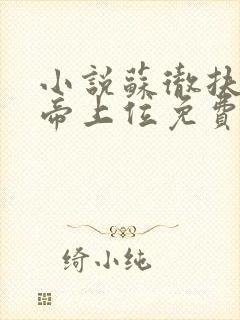 小說蘇徹扶
帝上位免費
绮小纯